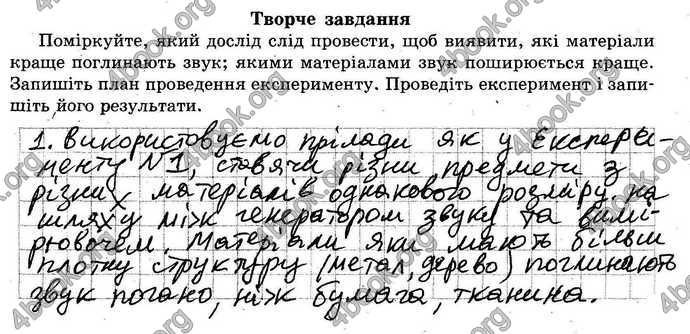 Творче завдання
Поміркуйте, який дослід слід провести, щоб виявити, які матеріали
краще поглинають звук; якими матеріалами звук поширюється краще.
Запишіть план проведення експерименту. Проведіть експеримент і запи-
шіть його результати.
1. Використовуємо прілади як у експеры-
менту №1, ставячи різни предмети з
різних матеріалів однакового розміру на
шляху між генератором звуку та вимі-
рювочем. Матеріали яки мають більш
плотну структуру (метал, дерево) поглинають
звук погано, ніж бумага, тканина.
4book.org